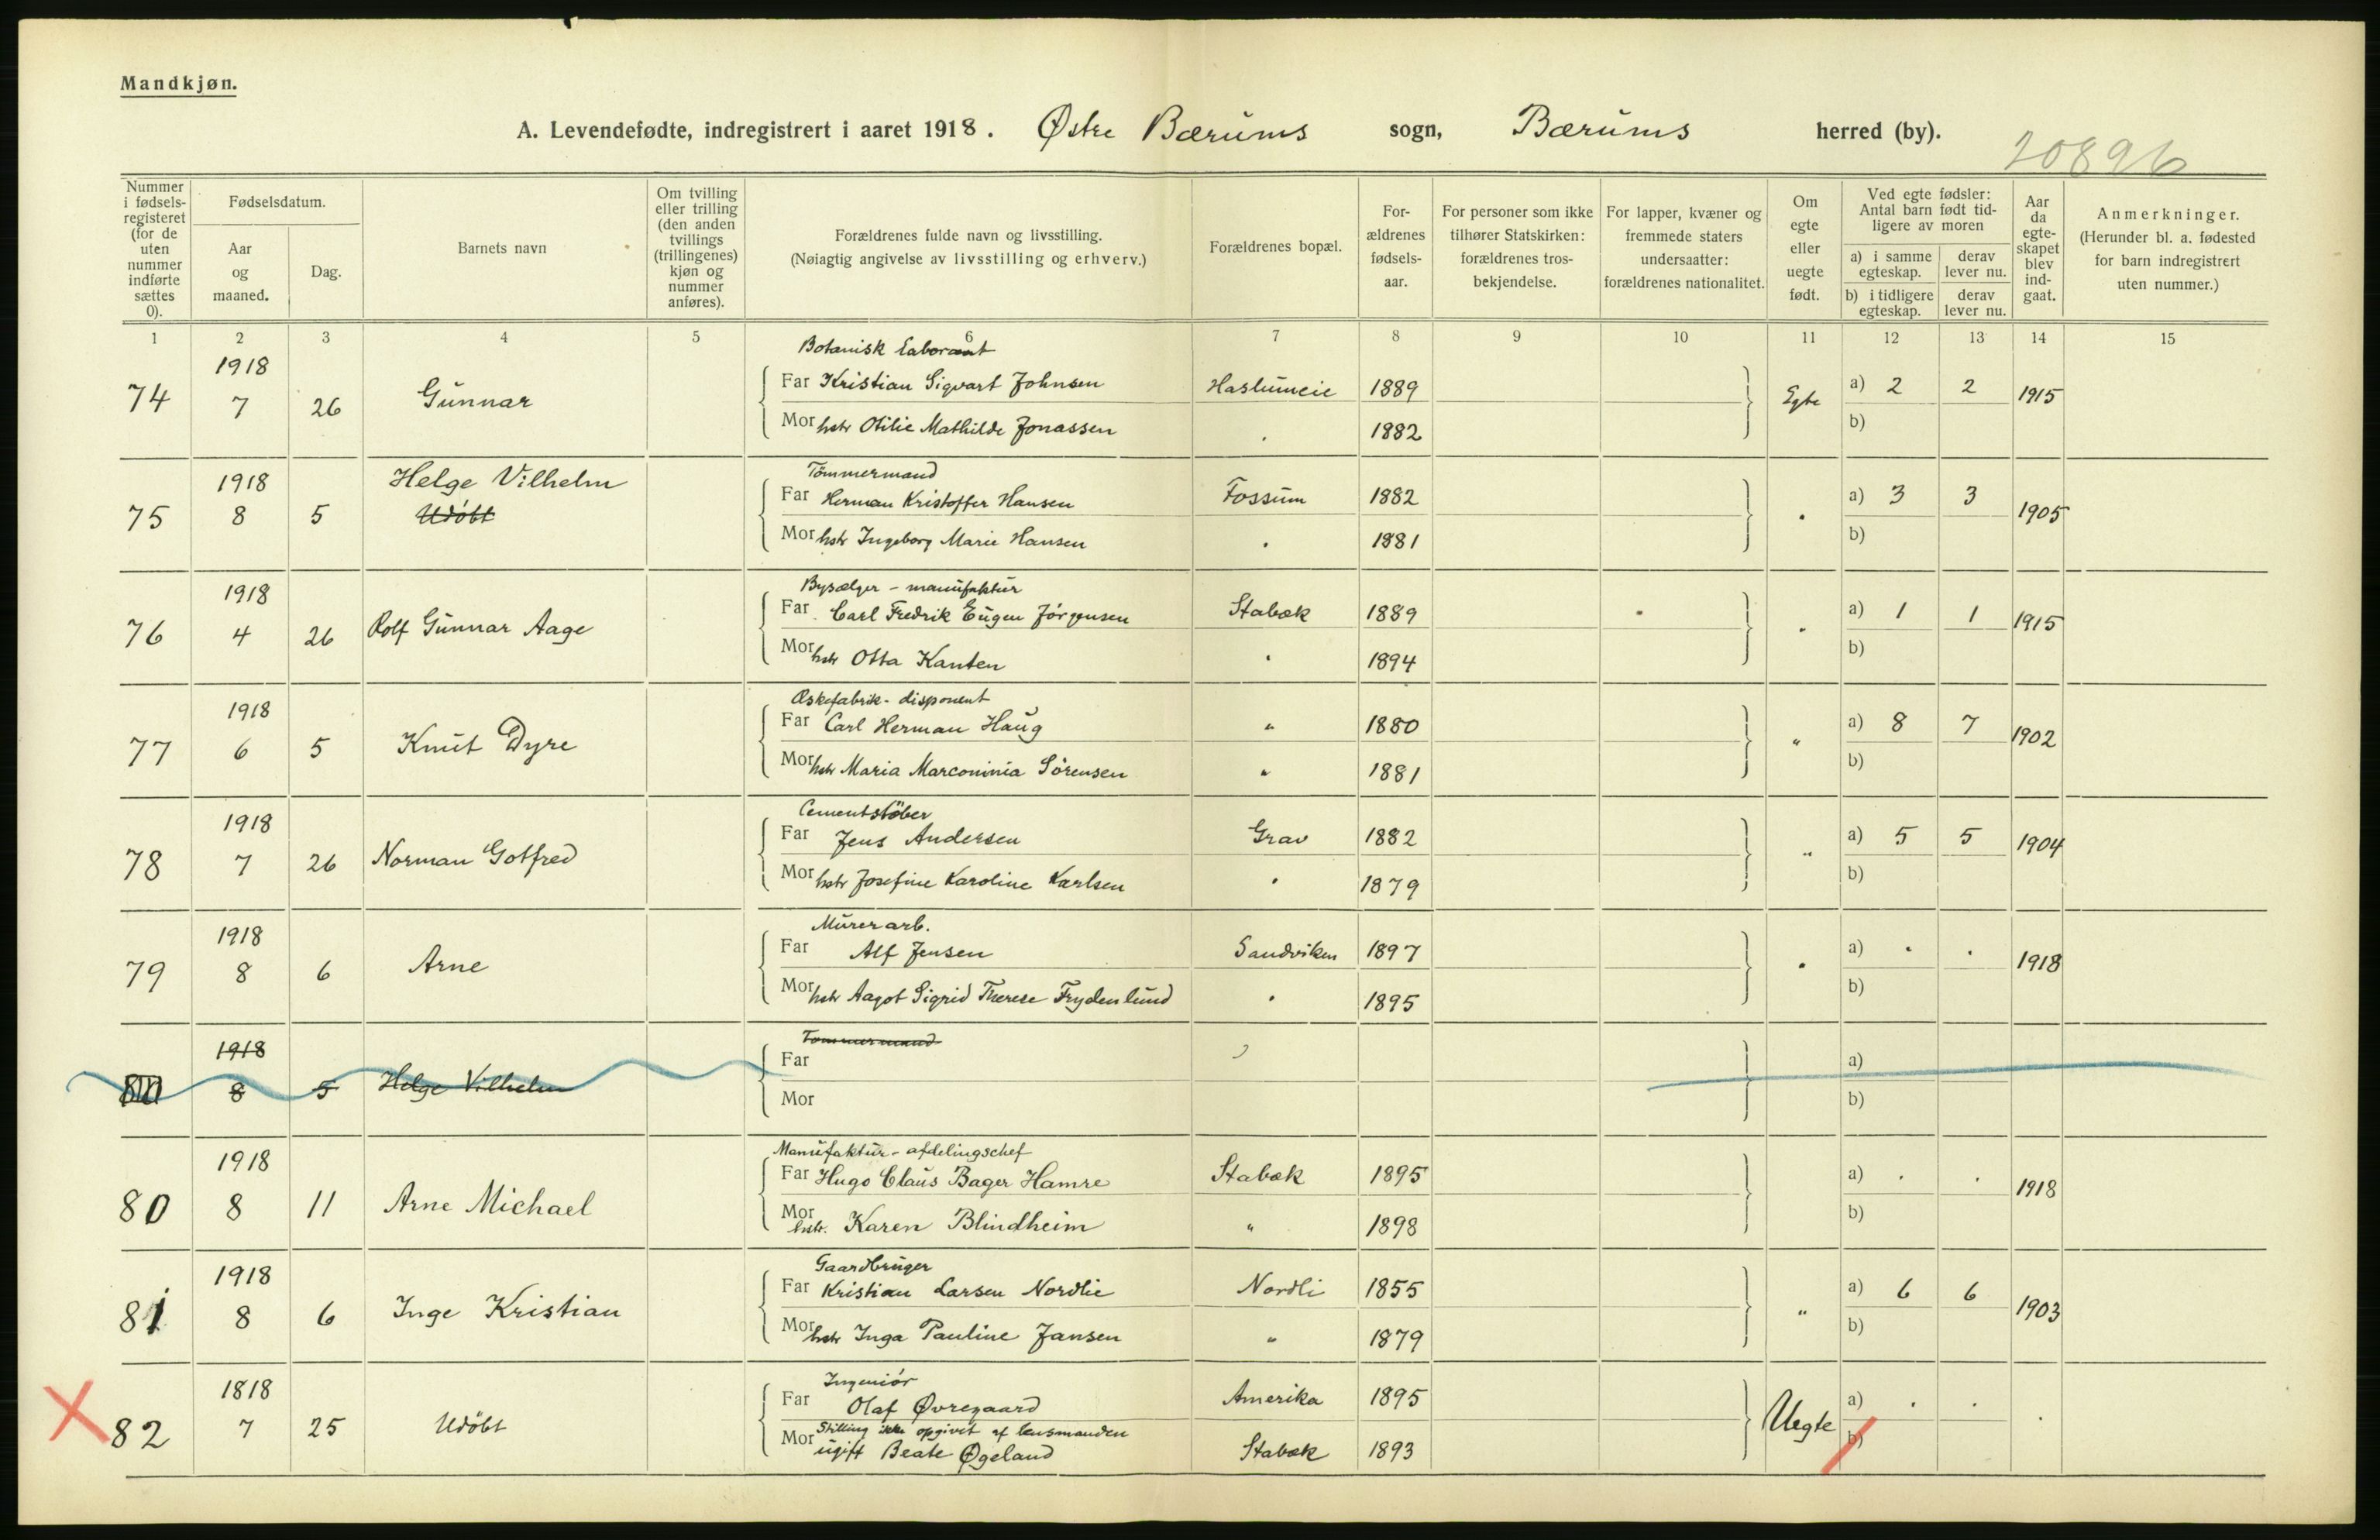 Mandkjøn.
A. Levendefødte, indregistrert i aaret 1918. Østre Bærums sogn, Bærums herred (by).
20896
Nummer i fødsels-registeret (for de uten nummer indførte sættes 0).
Fødselsdatum.
Aar og maaned.
Dag.
Barnets navn
Om tvilling eller trilling (den anden tvillings (trillingenes) kjøn og nummer anføres).
Forældrenes fulde navn og livsstilling.
(Nøiagtig angivelse av livsstilling og erhverv.)
Forældrenes bopæl.
For-ældrenes fødsels-aar.
For personer som ikke tilhører Statskirken: forældrenes tros-bekjendelse.
For lapper, kvæner og fremmede staters undersaatter: forældrenes nationalitet.
Om egte eller uegte født.
Ved egte fødsler: Antal barn født tid-ligere av moren
a) i samme egteskap.
derav lever nu.
b) i tidligere egteskap.
derav lever nu.
Aar da egte-skapet blev ind-gaat.
Anmerkninger.
(Herunder bl. a. fødested for barn indregistrert uten nummer.)
1 2 3 4 5 6 7 8 9 10 11 12 13 14 15
1918 Botanisk Laborant
74 7 26 Gunnar Far Kristian Sigvart Johnsen Haslumeie 1889 Egte a) 2 2 1915
Mor hstr Otilie Mathilde Jonassen " 1882 b)
1918 Helge Vilhelm Tömmermand
75 8 5 Udöbt Far Herman Kristoffer Hansen Fossum 1882 " a) 3 3 1905
Mor hstr Ingeborg Marie Hansen " 1881 b)
1918 Bysælger - manufaktur
76 4 26 Rolf Gunnar Aage Far Carl Fredrik Eugen Jörgensen Stabæk 1889 " a) 1 1 1915
Mor hstr Otta Kanten " 1894 b)
1918 Æskefabrik - disponent
77 6 5 Knut Dyre Far Carl Herman Haug " 1880 " a) 8 7 1902
Mor hstr Maria Marconinia Sörensen " 1881 b)
1918 Cementstöber
78 7 26 Norman Gotfred Far Jens Andersen Grav 1882 " a) 5 5 1904
Mor hstr Josefine Karoline Karlsen " 1879 b)
1918 Murerarb.
79 8 6 Arne Far Alf Jensen Sandviken 1897 " a) " " 1918
Mor hstr Aagot Sigrid Therese Frydenlund " 1895 b)
1918 Tömmermand
80 8 5 Helge Vilhelm Far a)
Mor b)
1918 Manufaktur - afdelingschef
80 8 11 Arne Michael Far Hugo Claus Bager Hamre Stabæk 1895 a) " " 1918
Mor hstr. Karen Blindheim " 1898 b)
1918 Gaardbruger
81 8 6 Inge Kristian Far Kristian Larsen Nordlie Nordli 1855 " a) 6 6 1903
Mor hstr Inga Pauline Jansen " 1879 b)
1818 Ingeniör
82 7 25 Udöbt Far Olaf Øvregaard Amerika 1895 Uegte a) " " "
Stilling ikke opgivet af lensmanden
Mor ugift Beate Øgeland Stabæk 1893 b)